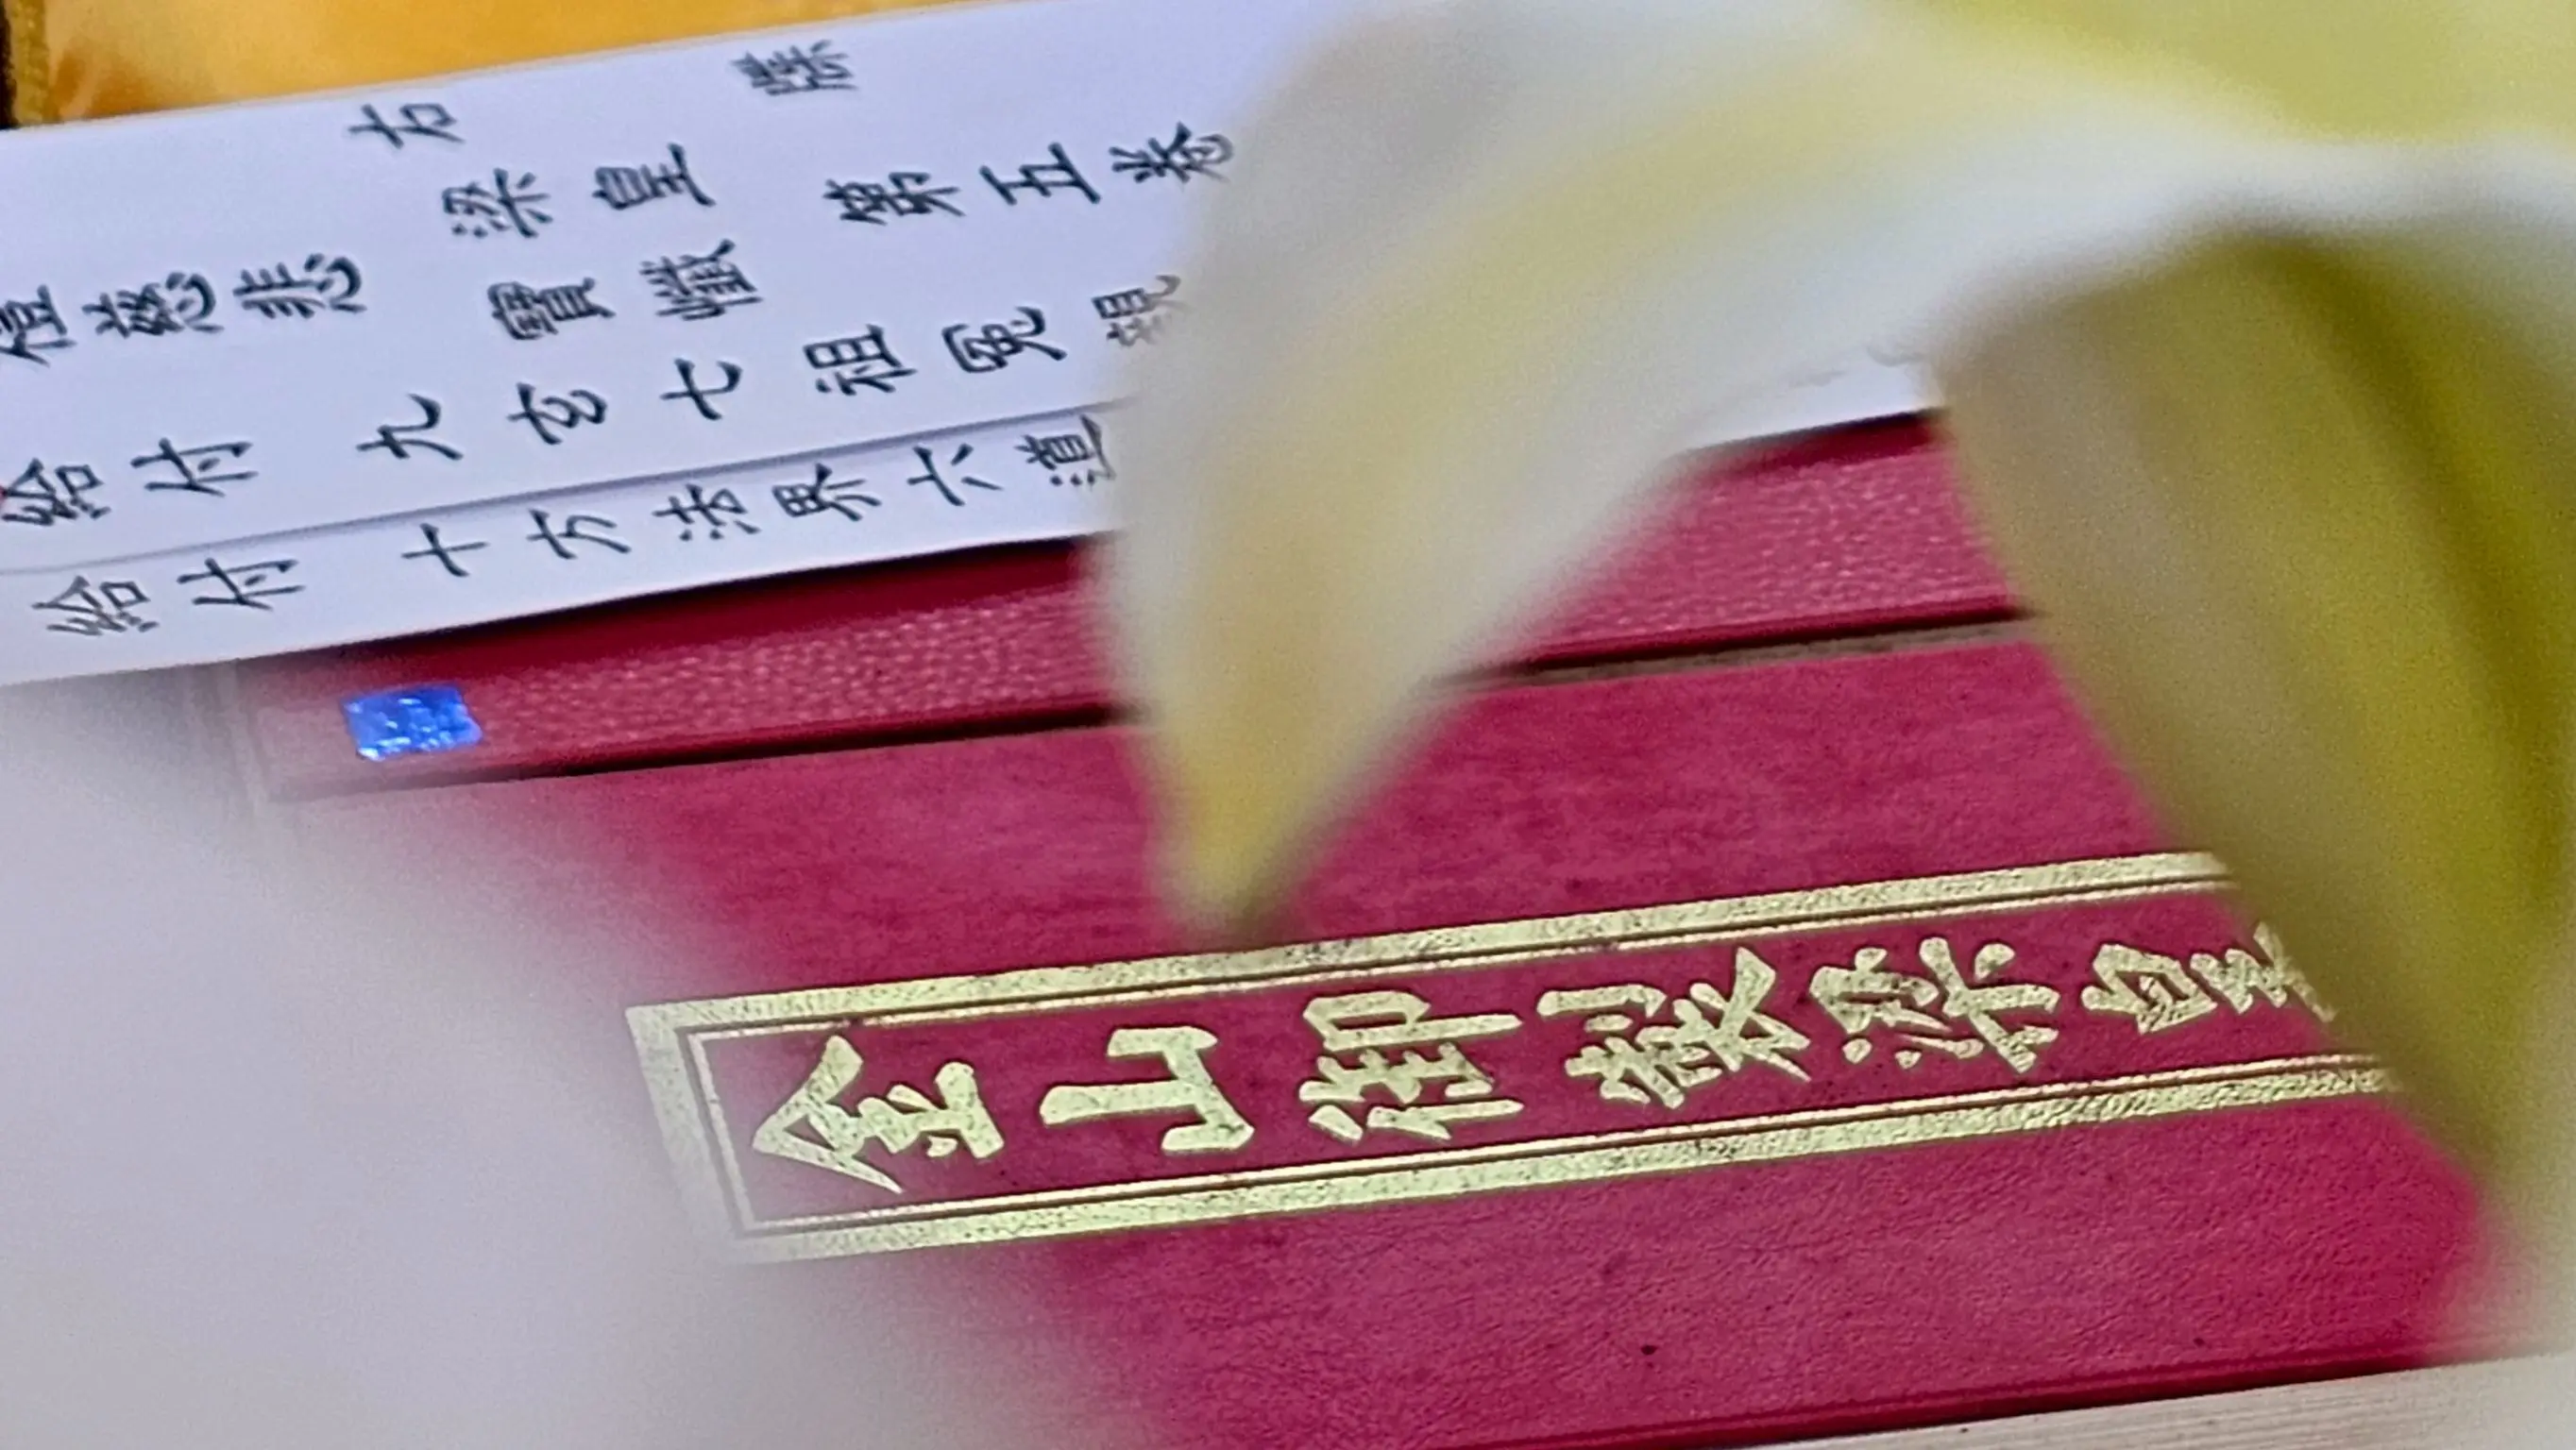 右 牒
慈悲 梁皇寶懺 第五卷
給付 九玄七祖冤親
給付 十方法界六道
金山御製梁皇